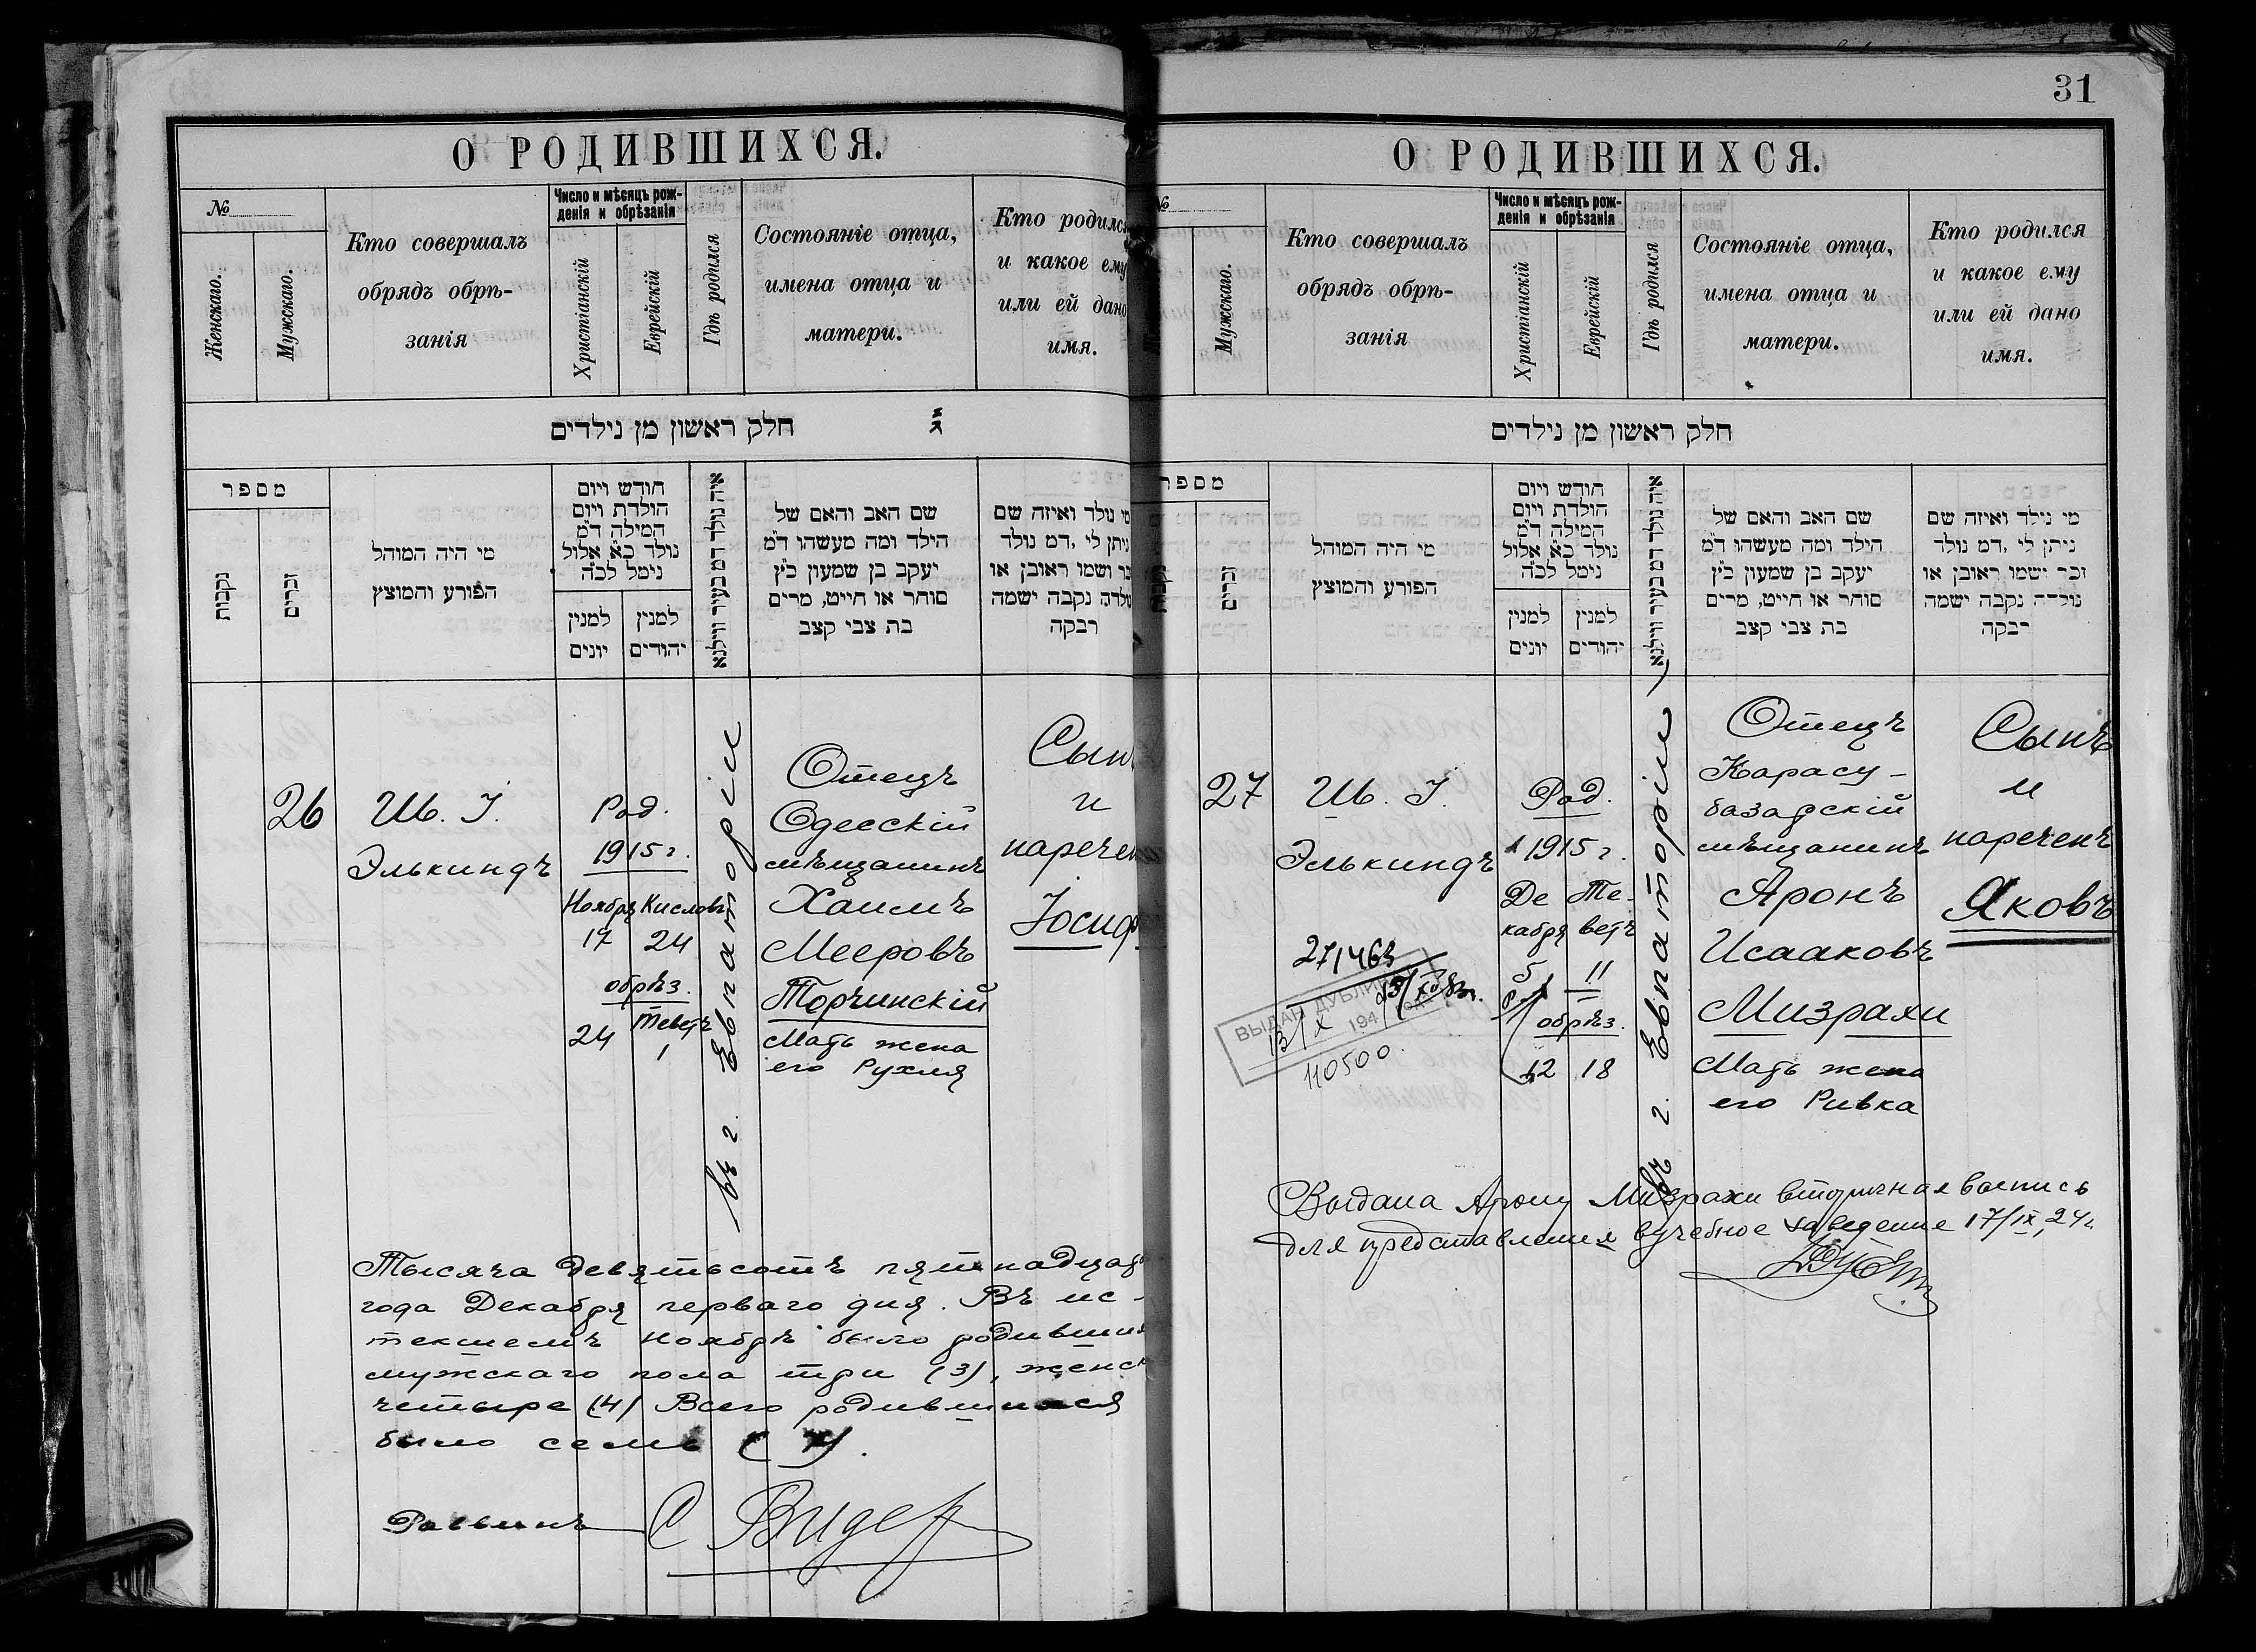 31
О РОДИВШИХСЯ.
№
Женскаго.
Мужскаго.
Кто совершалъ
обрядъ обрѣ-
занія
Число и мѣсяцъ рож-
денія и обрѣзанія
Христіанскій
Еврейскій
Гдѣ родился
Состояніе отца,
имена отца и
матери.
Кто родился
и какое ему
или ей дано
имя.
חלק ראשון מן נילדים
מספר
נקבות
זכרים
מי היה המוהל
הפורע והמוצץ
חודש ויום
הולדת ויום
המילה ד״מ
נולד כ״א אלול
נימל לכ״ה
למנין
יונים
למנין
יהודים
איה נולד דמ בעיר ווילנא
שם האב והאם של
הילד ומה מעשהו ד״מ
יעקב בן שמעון כ״ץ
סוחר או חייט, מרים
בת צבי קצב
מי נולד ואיזה שם
ניתן לי, דמ נולד
זכר ושמו ראובן או
נולדה נקבה ישמה
רבקה
26
Ш. І.
Элькиндъ
Род.
1915 г.
Ноября Кислевъ
17 24
обрѣз.
Теветъ
24 1
въ г. Евпаторіи
Отецъ
Одесскій
мѣщанинъ
Хаимъ
Мееровъ
Торчинскій
Мать жена
его Рухля
Сынъ
и
наречен
Іосиф
Тысяча девятьсотъ пятнадцат
года Декабря перваго дня. Въ ис-
текшемъ ноябрѣ было родивших
мужскаго пола три (3), женск
четыре (4) Всего родившихся
было семь (7).
Раввинъ С Видер
О РОДИВШИХСЯ.
№
Мужскаго.
Кто совершалъ
обрядъ обрѣ-
занія
Число и мѣсяцъ рож-
денія и обрѣзанія
Христіанскій
Еврейскій
Гдѣ родился
Состояніе отца,
имена отца и
матери.
Кто родился
и какое ему
или ей дано
имя.
חלק ראשון מן נילדים
מספר
נקבות
זכרים
מי היה המוהל
הפורע והמוצץ
חודש ויום
הולדת ויום
המילה ד״מ
נולד כ״א אלול
נימל לכ״ה
למנין
יונים
למנין
יהודים
איה נולד דמ בעיר ווילנא
שם האב והאם של
הילד ומה מעשהו ד״מ
יעקב בן שמעון כ״ץ
סוחר או חייט, מרים
בת צבי קצב
מי נילד ואיזה שם
ניתן לי, דמ נולד
זכר ישמו ראובן או
נולדה נקבה ישמה
רבקה
27
Ш. І.
Элькиндъ
Род.
1915 г.
Де Те-
кабря ветъ
5 11
обрѣз.
12 18
въ г. Евпаторіи
Отецъ
Карасу-
базарскій
мѣщанинъ
Аронъ
Исааковъ
Мизрахи
Мать жена
его Ривка
Сынъ
и
нареченъ
Яковъ
271463
ВЫДАН ДУБЛИКАТ
13/X 194
110500.
Выдана Арону Мизрахи вторичная выпись
для представления в учебное заведение 17/IX 24 г.